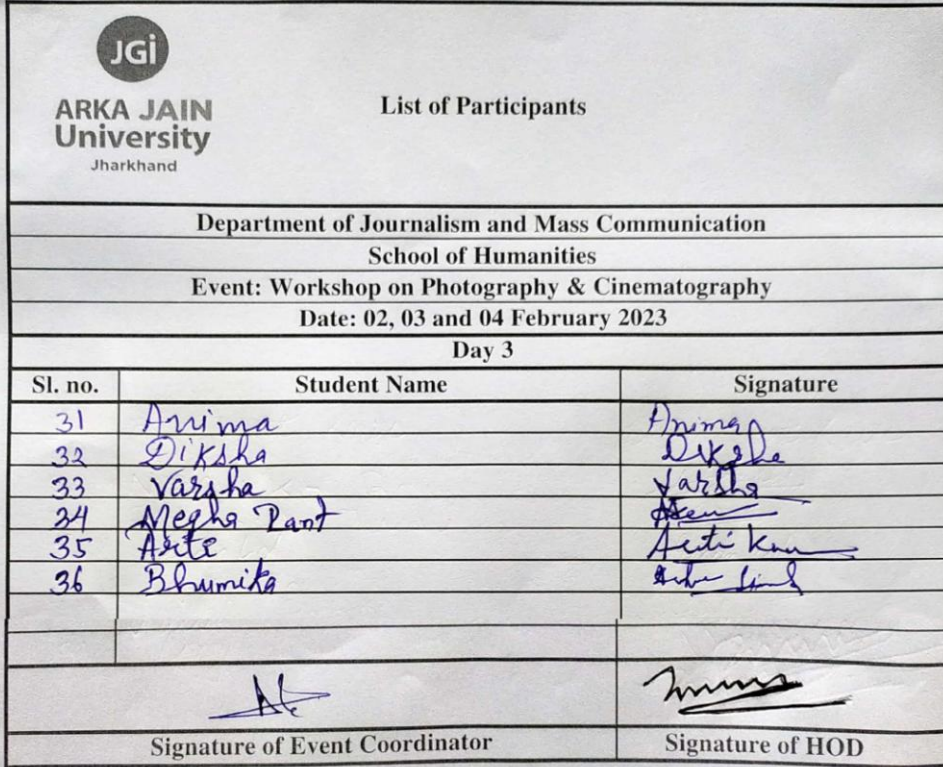 JGi
ARKA JAIN
University
Jharkhand
List of Participants
Department of Journalism and Mass Communication
School of Humanities
Event: Workshop on Photography & Cinematography
Date: 02, 03 and 04 February 2023
Day 3
Sl. no. Student Name Signature
31 Anima Anima
32 Diksha Diksha
33 Varsha Varsha
34 Megha Pant
35 Arti
36 Bhumika
Signature of Event Coordinator Signature of HOD